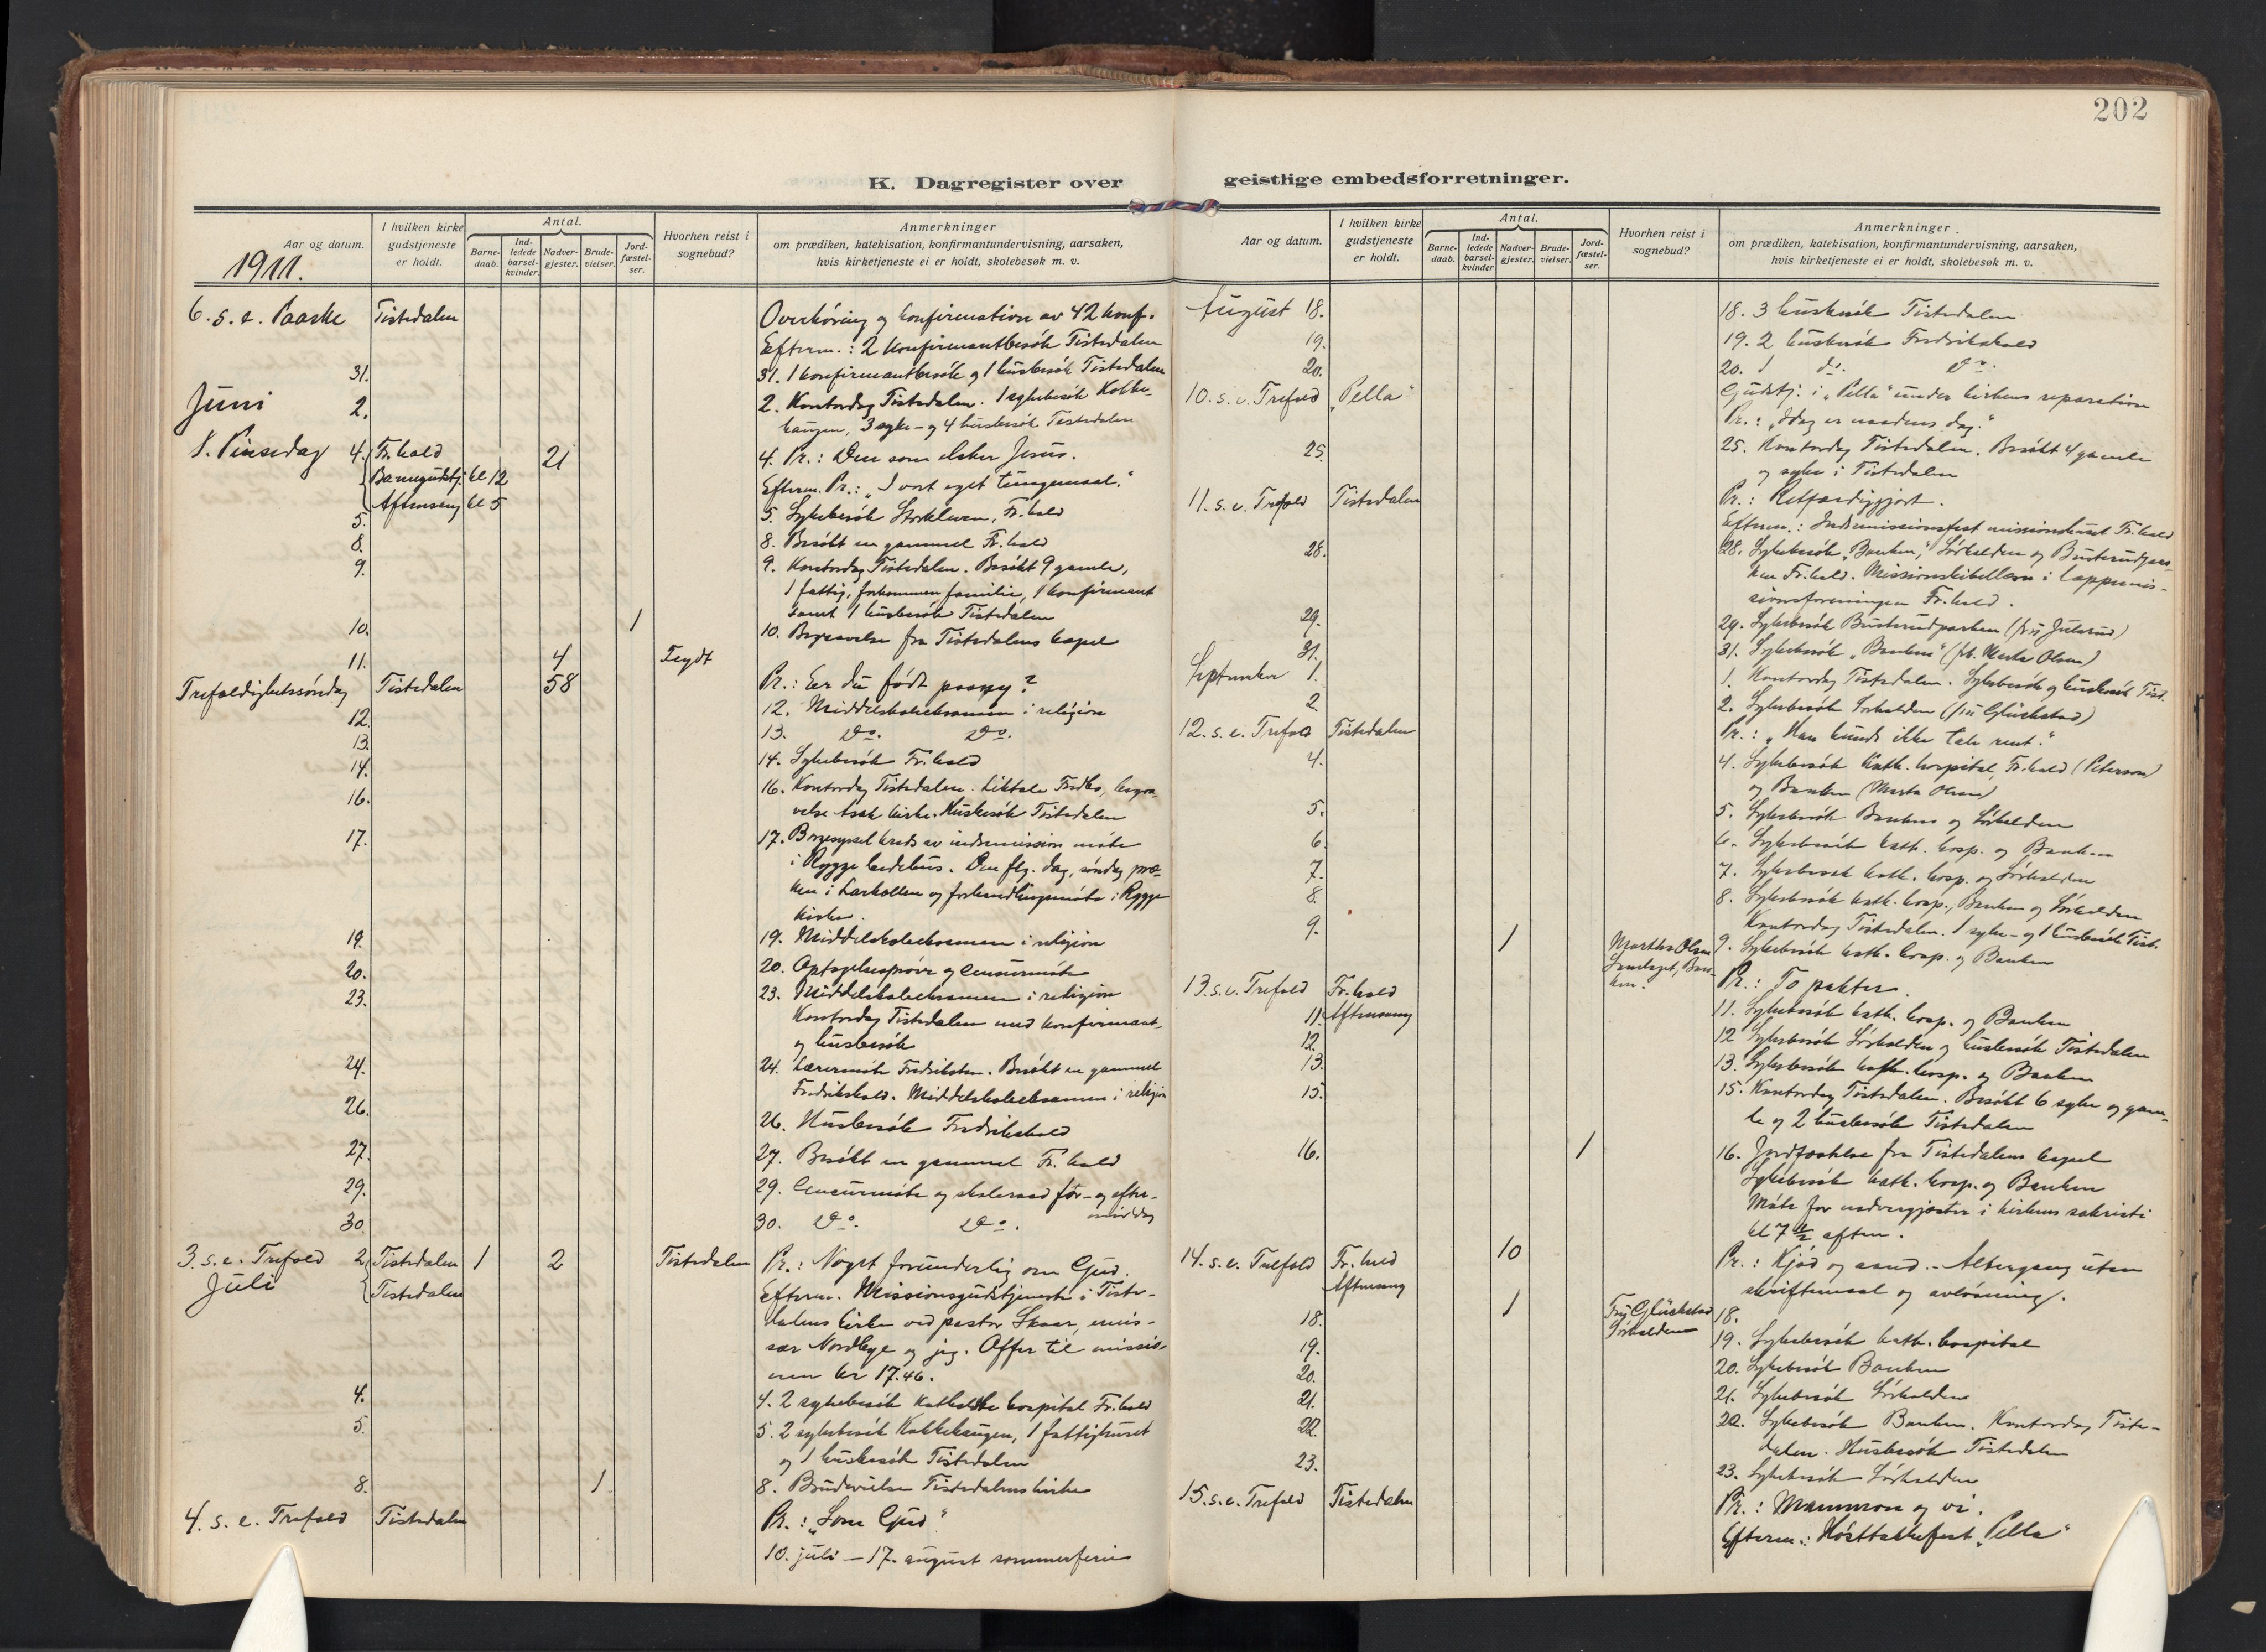 202
K. Dagregister over
geistlige embedsforretninger.
Aar og datum.
I hvilken kirke gudstjeneste er holdt.
Antal.
Barne-daab.
Ind-ledede barsel-kvinder
Nadver-gjester.
Brude-vielser.
Jord-fæstel-ser.
Hvorhen reist i sognebud?
Anmerkninger
om prædiken, katekisation, konfirmantundervisning, aarsaken,
hvis kirketjeneste ei er holdt, skolebesøk m. v.
1911.
6. s. e. Paaske Tistedalen Overhöring og konfirmation av 42 konf.
Efterm.: 2 konfirmantbesök Tistedalen
31. 31. 1 konfirmantbesök og 1 husbesök Tistedalen
Juni 2. 2. Kontordag Tistedalen. 1 sykebesök Kokke-
haugen, 3 syke- og 4 husbesök Tistedalen
1. Pinsedag 4. Fr.hald 21 4. Pr.: Den som elsker Jesus.
Barnegudstj. kl 12
Efterm. Pr.: "I vort eget tungemaal."
Aftensang kl 5
5. 5. Sykebesök Fr.hald
8. 8. Besökt en gammel Fr.hald
9. 9. Kontordag Tistedalen. Besökt 9 gamle,
1 fattig, forkommen familie, 1 konfirmant
samt 1 husbesök Tistedalen
10. 1 10. Begravelse fra Tistedalens kapel
11. 4
Trefoldighetssöndag Tistedalen 58 Pr.: Er du født paany?
12. 12. Middelskoleeksamen i religion
13. 13. do. do.
14. 14. Sykebesök Fr.hald
16. 16. Kontordag Tistedalen. Liktale begra-
velse Asak kirke. Husbesök Tistedalen
17. 17. Borgesyssel kreds av indremission möte
i Rygge bedehus. Den flg. dag, söndag, præ-
ken i Larkollen og forhandlingsmöte i Rygge
kirke.
19. 19. Middelskoleeksamen i religion
20. 20. Optagelsespröve og censurmöte
23. 23. Middelskoleeksamen i religion
Kontordag Tistedalen med konfirmant-
og husbesök
24. 24. Lærermöte Fredriksten. Besökt en gammel
Fredrikshald. Middelskoleeksamen i religion
26. 26. Husbesök Fredrikshald
27. 27. Besökt en gammel Fr.hald
29. 29. Censurmöte og skoleraad før- og efter-
middag
30. 30. do. do.
3. s. e. Trefold 2. Tistedalen 1 2 Tistedalen Pr.: Noget forunderlig om Gud.
Juli Tistedalen Efterm. Missionsgudstjeneste i Tiste-
dalens kirke ved pastor Skaar, emis-
sær Nordbye og jeg. Offer til missio-
nen kr 17.46.
4. 4. 2 sykebesök katholske hospital Fr.hald
5. 5. 2 sykebesök Kokkehaugen, 1 fattighuset
og 1 husbesök Tistedalen
8. 1 8. Brudevielse Tistedalens kirke
4. s. e. Trefold Tistedalen Pr.: "Som Gud"
10. juli – 17. august sommerferie
Aar og datum.
I hvilken kirke gudstjeneste er holdt.
Antal.
Barne-daab.
Ind-ledede barsel-kvinder
Nadver-gjester.
Brude-vielser.
Jord-fæstel-ser.
Hvorhen reist i sognebud?
Anmerkninger
om prædiken, katekisation, konfirmantundervisning, aarsaken,
hvis kirketjeneste ei er holdt, skolebesøk m. v.
August 18. 18. 3 husbesök Tistedalen
19. 19. 2 husbesök Fredrikshald
20. 20. 1 do. do.
10. s. e. Trefold "Pella" Gudstj. i "Pella" under kirkens reparation
Pr.: "Idag er naadens dag."
25. 25. Kontordag Tistedalen. Besökt 4 gamle
og syke i Tistedalen
11. s. e. Trefold Tistedalen Pr.: Retfærdiggjort.
Efterm.: Indremissionsfest missionshuset Fr.hald
28. 28. Sykebesök "Banken," Sörhalden og Busterudpar-
ken Fr.hald. Missionsbibellæsn i lappemis-
sionsforeningen Fr.hald.
29. 29. Sykebesök Busterudparken (fru Julsrud)
31. 31. Sykebesök "Banken" (frk. Marta Olsen)
September 1. 1. Kontordag Tistedalen. Sykebesök og husbesök Tist.
2. 2. Sykebesök Sörhalden (fru Glückstad)
12. s. e. Trefold Tistedalen Pr.: "Han kunde ikke tale rent."
4. 4. Sykebesök kath. hospital, Fr.hald (Peterson)
og Banken (Marta Olsen)
5. 5. Sykebesök Banken og Sörhalden
6. 6. Sykebesök kath. hosp. og Banken
7. 7. Sykebesök kath. hosp. og Sörhalden
8. 8. Sykebesök kath. hosp., Banken og Sörhalden
Kontordag Tistedalen. 1 syke- og 1 husbesök Tist.
9. 1 Martha Olsen 9. Sykebesök kath. hosp. og Banken
13. s. e. Trefold Fr.hald Pr.: To pakter.
Aftensang
11. 11. Sykebesök kath. hosp. og Banken
12. 12 Sykebesök Sörhalden og husbesök Tistedalen
13. 13. Sykebesök kath. hosp. og Banken
15. 15. Kontordag Tistedalen. Besökt 6 syke og gam-
le og 2 husbesök Tistedalen
16. 1 16. Jordfæstelse fra Tistedalens kapel
Sykebesök kath. hosp. og Banken
Möte for nadvergjester i kirkens sakristi
kl 7 1/2 aften.
14. s. e. Trefold Fr.hald 10 Pr.: Kjød og aand. – Altergang uten
Aftensang skriftemaal og avlösning.
18. 1 Fru Glückstad Sörhalden 18.
19. 19. Sykebesök kath. hospital
20. 20. Sykebesök Banken
21. 21. Sykebesök Sörhalden
22. 22. Sykebesök Banken. Kontordag Tiste-
dalen. Husbesök Tistedalen
23. 23. Sykebesök Sörhalden
15. s. e. Trefold Tistedalen Pr.: Mammon og vi.
Efterm.: Hösttakkefest "Pella"